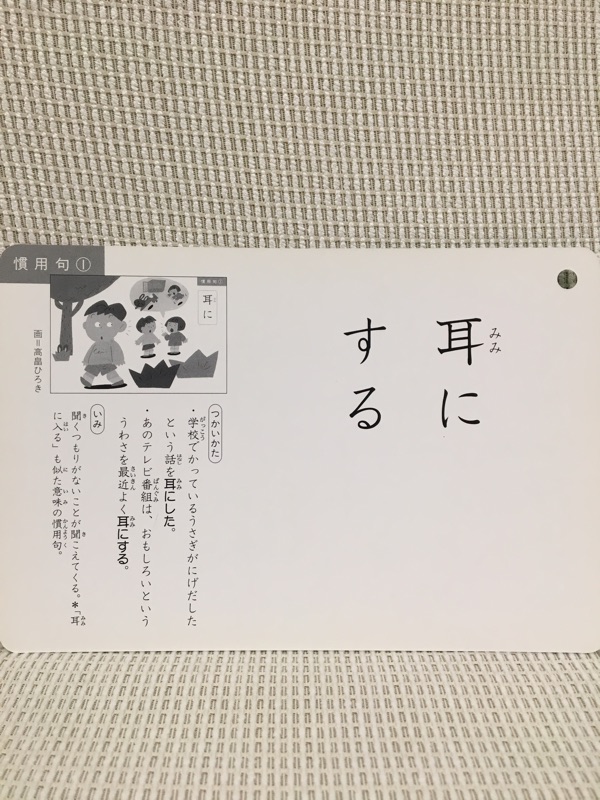 慣用句①
耳に
する
慣用句①
耳に
画＝高畠ひろき
つかいかた
・学校でかっているうさぎがにげだした
という話を耳にした。
・あのテレビ番組は、おもしろいという
うわさを最近よく耳にする。
いみ
聞くつもりがないことが聞こえてくる。＊「耳
に入る」も似た意味の慣用句。